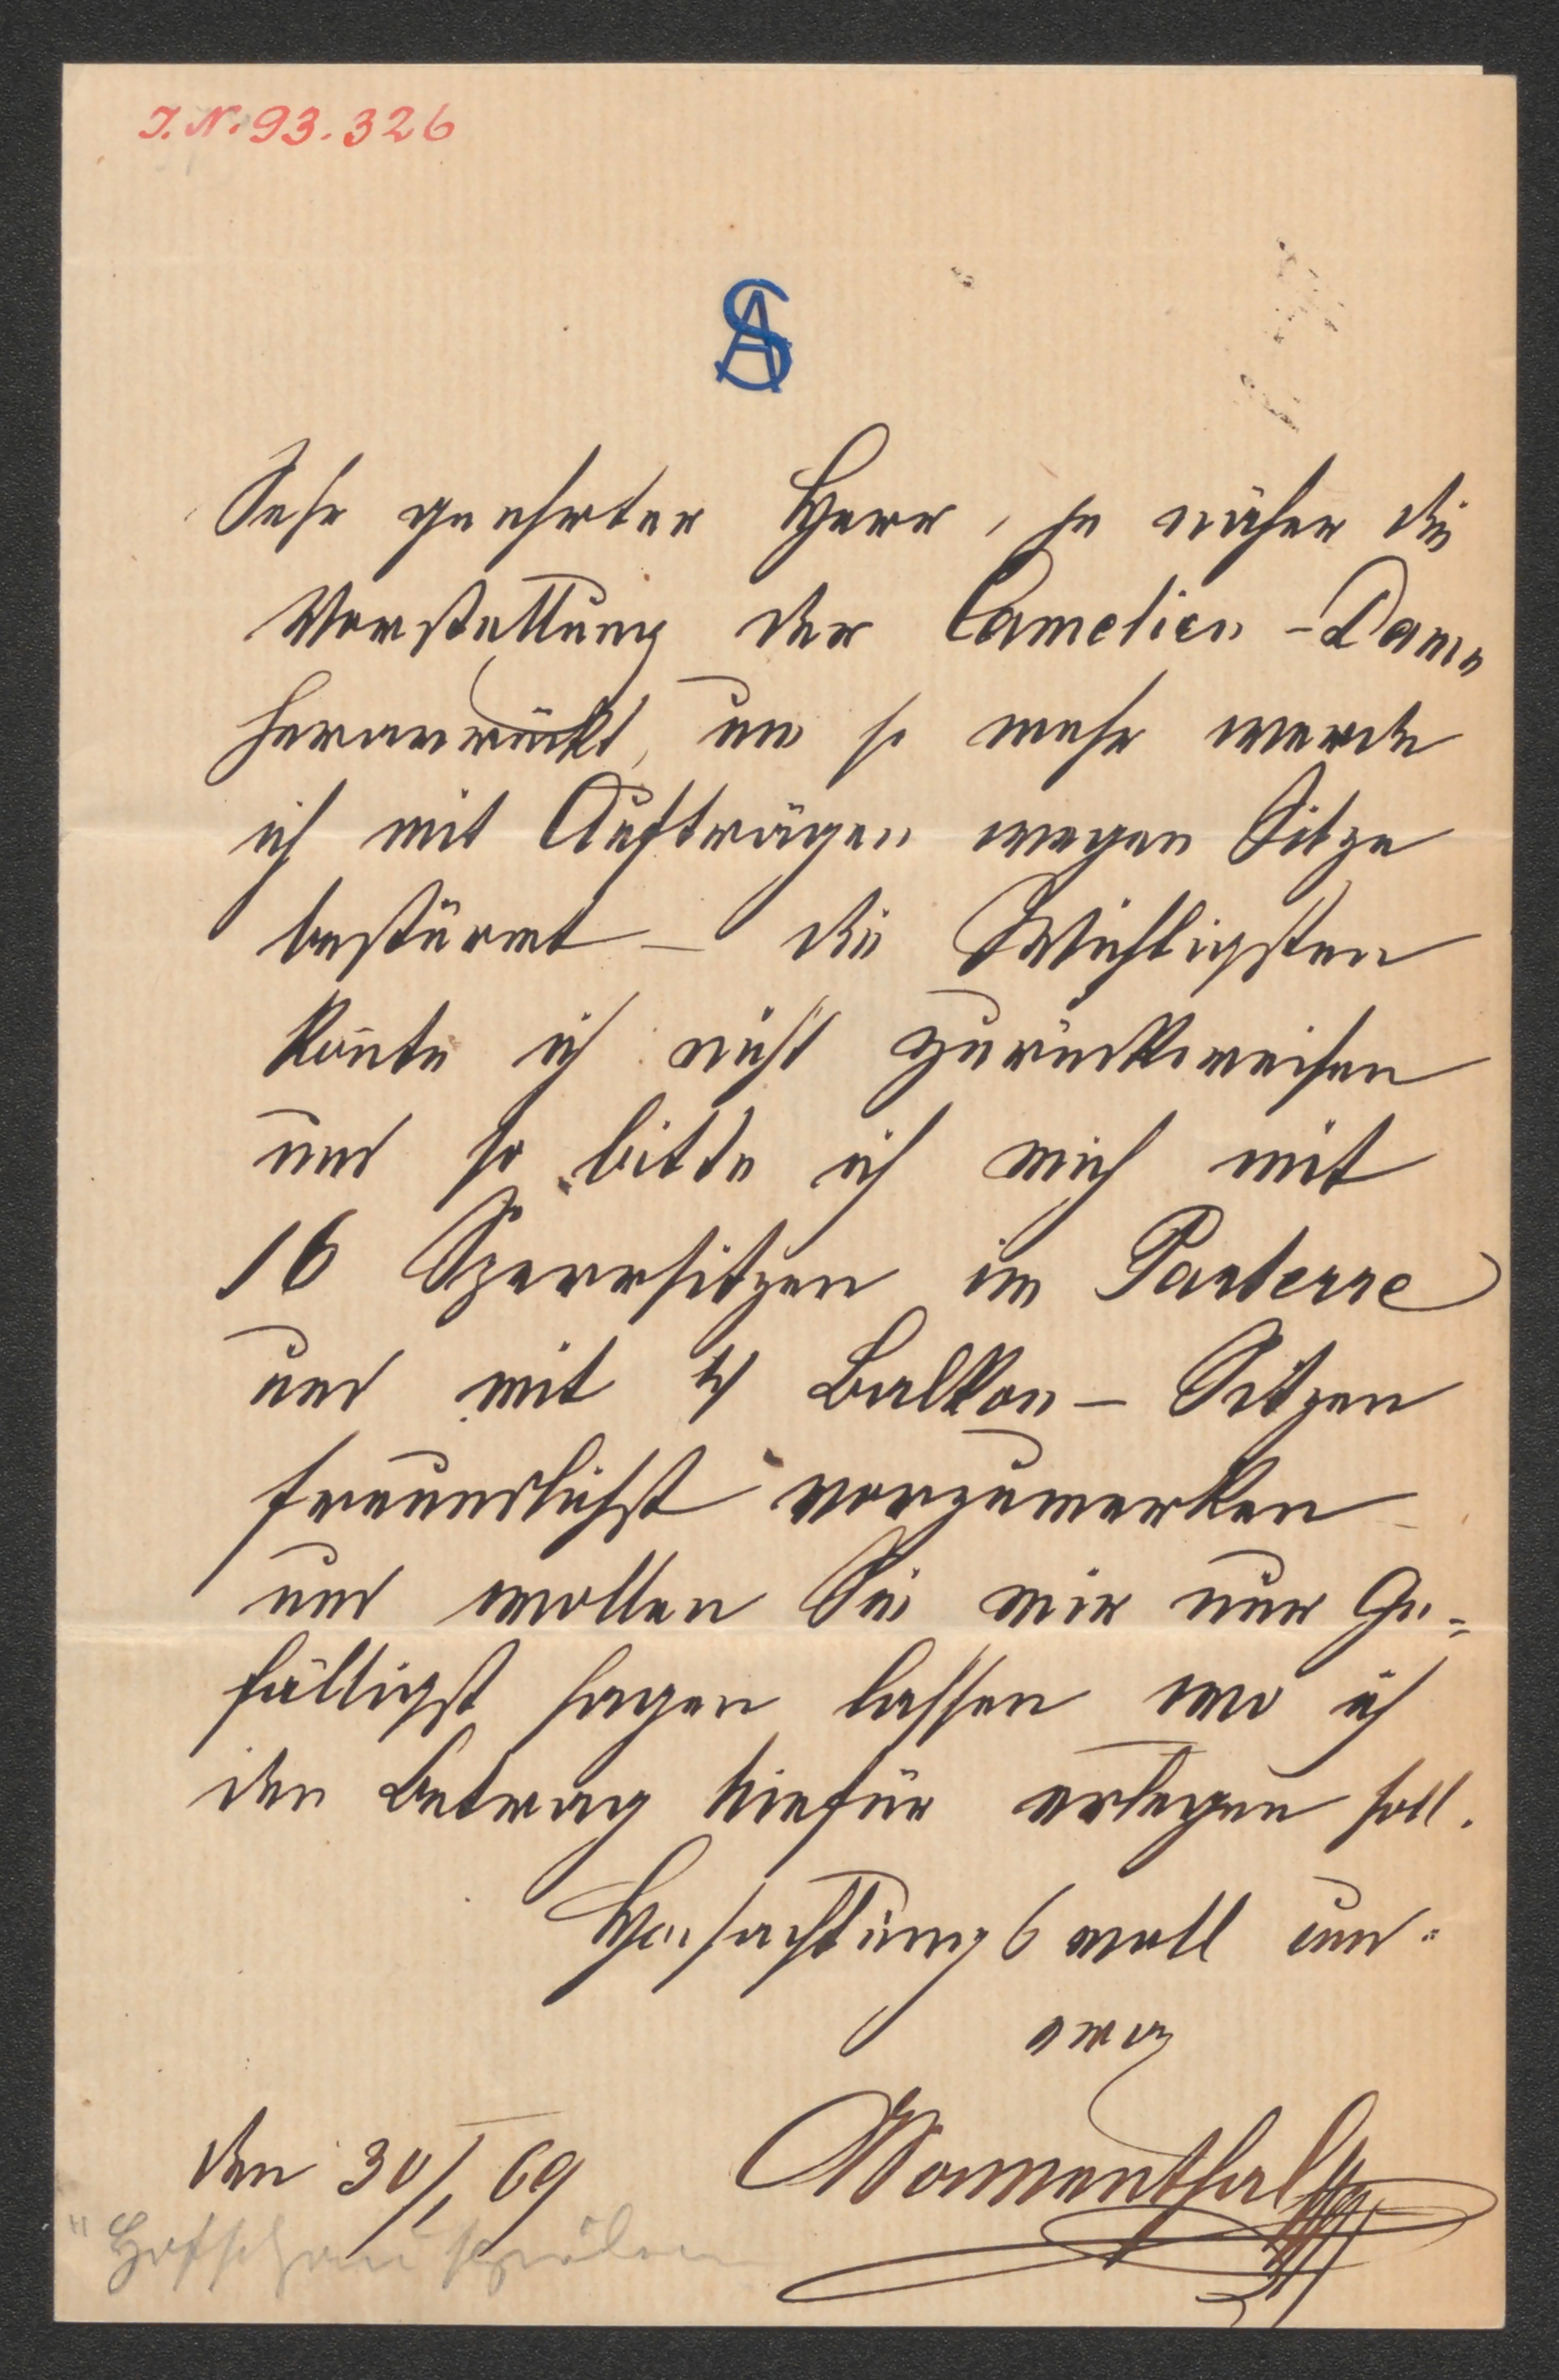 J. N. 93.326
SA
Sehr geehrter Herr, je näher die
Vorstellung der Camelien-Dame
heranrückt, um so mehr werde
ich mit Aufträgen wegen Sitze
bestürmt – die Wichtigsten
kon̄te ich nicht zurückweisen
und so bitte ich mich mit
16 Sperrsitzen im Parterre
und mit 4 Balkon-Sitzen
freundlichst vorzumerken
und wollen Sie mir nur Ge=
fälligst sagen lassen wo ich
den Betrag hiefür erlegen soll.
Hochachtungsvoll
den 30/1 69
"Hofschauspieler